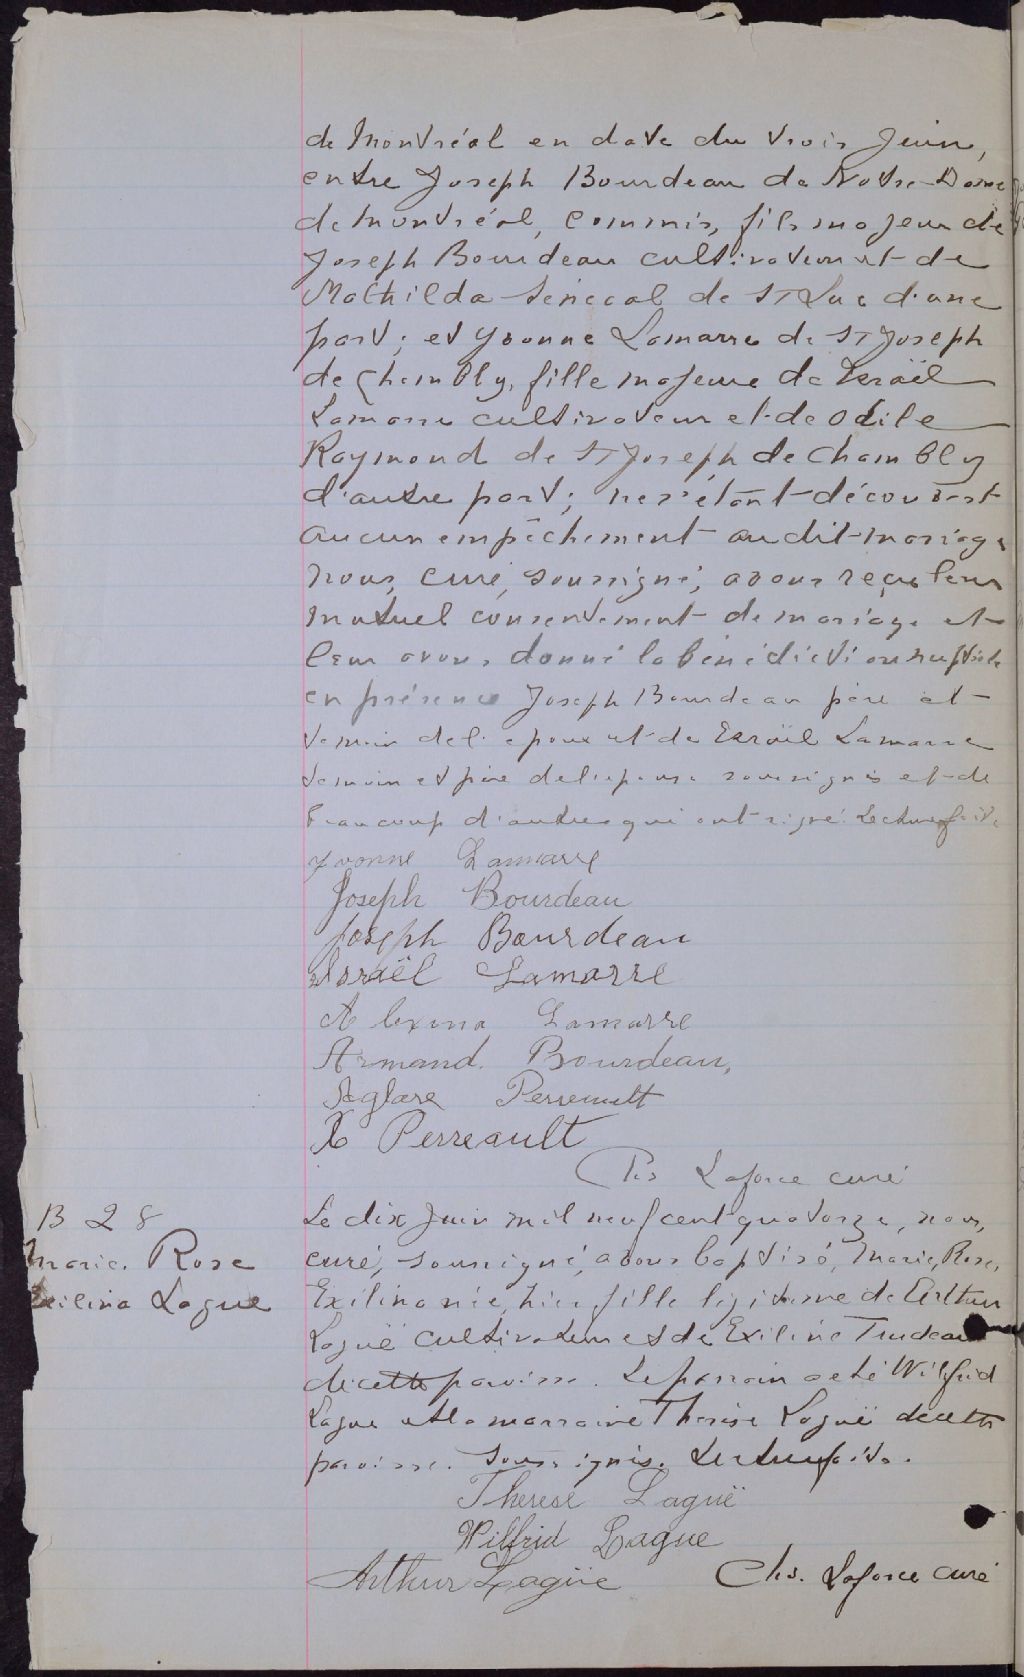 de Montréal en date du trois Juin,
entre Joseph Bourdeau de Notre-Dame
de Montréal, commis, fils majeur de
Joseph Bourdeau cultivateur et de
Mathilda Senécal de St Luc d'une
part; et Yvonne Lamarre de St Joseph
de Chambly, fille majeure de Israël
Lamarre cultivateur et de Odile
Raymond de St Joseph de Chambly
d'autre part; ne s'étant découvert
aucun empêchement au dit mariage
nous, curé, soussigné, avons reçu leur
mutuel consentement de mariage et
leur avons donné la bénédiction nuptiale
en présence Joseph Bourdeau père et
temoin de l'epoux et de Esraël Lamarre
temoin et père de l'epouse soussignés et de
beaucoup d'autres qui ont signé. Lecture faite
Yvonne Lamarre
Joseph Bourdeau
Joseph Bourdeau
Israël Lamarre
Alexina Lamarre
Armand. Bourdeau,
Aglaee Perreault
X Perreault
Chs Laforce curé
B 28
Marie. Rose
Exilina Lague
Le dix Juin mil neuf cent quatorze, nous,
curé, soussigné, avons baptisé, Marie, Rose,
Exilina née, hier fille légitime de Arthur
Laguë cultivateur et de Exiline Trudeau
de cette paroisse. Le parrain a été Wilfrid
Lague et la marraine Therèse Laguë de cette
paroisse. Soussignés. Lecture faite.
Therese Laguë
Wilfrid Lague
Arthur Lagüe Chs. Laforce curé